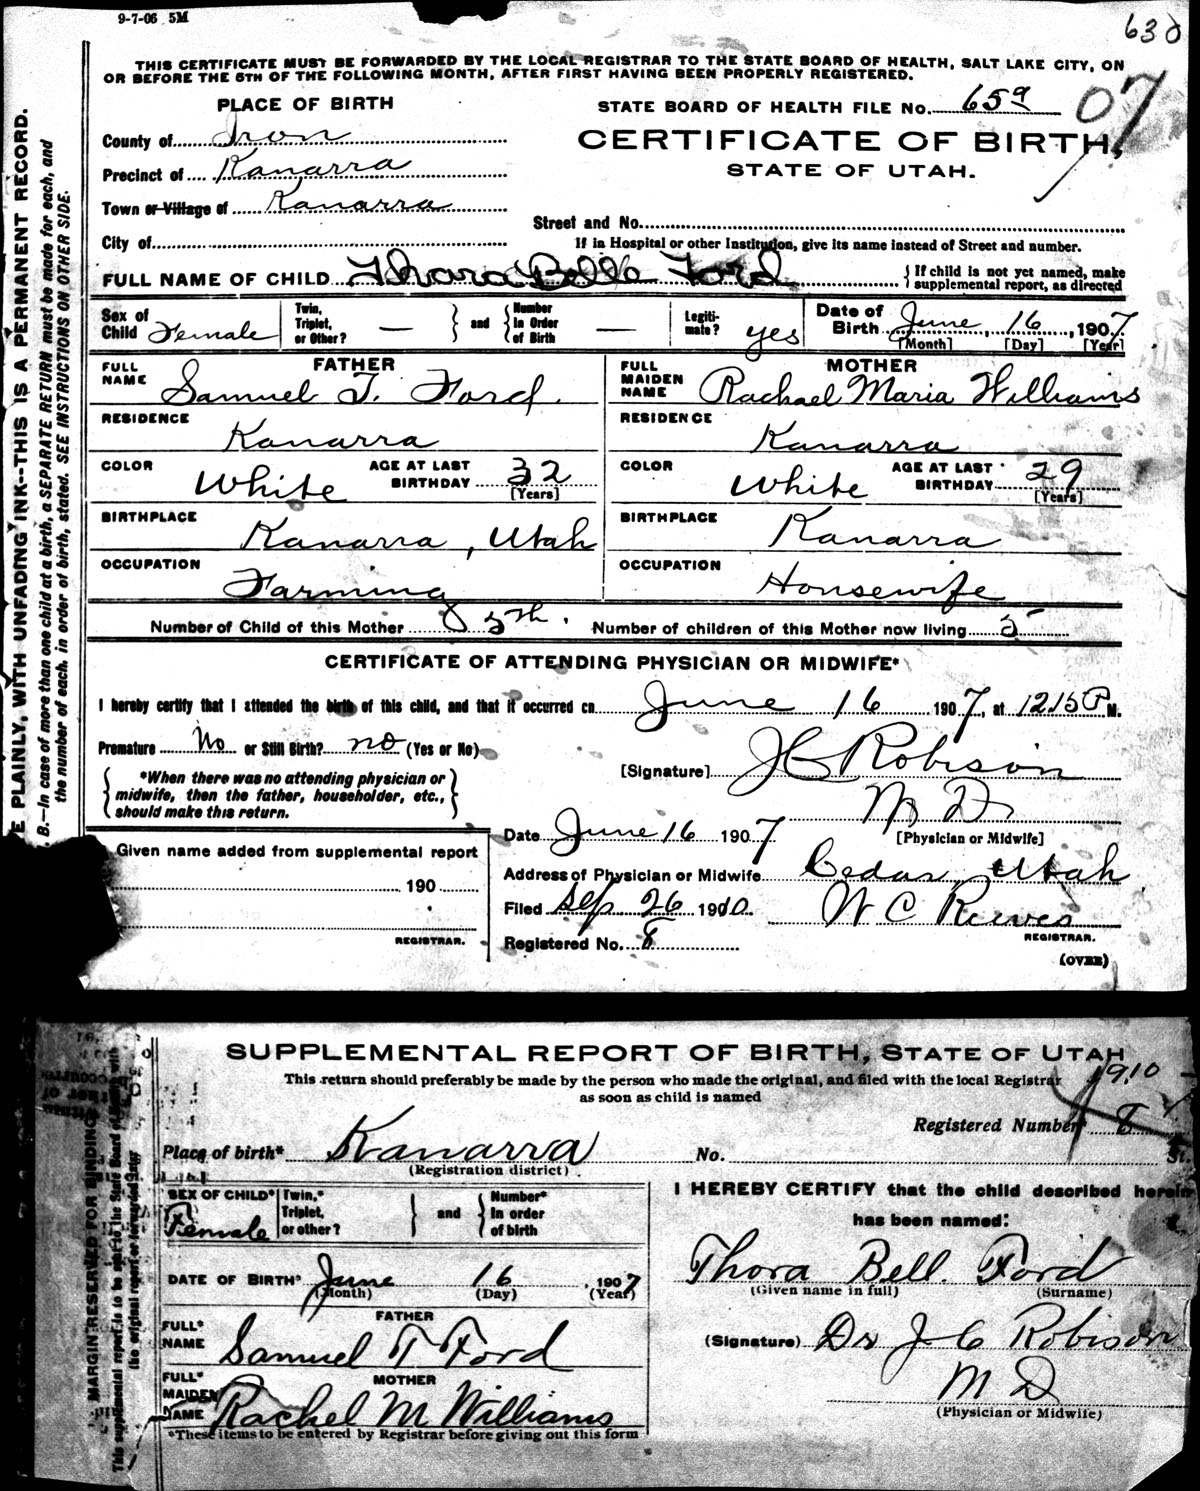 9-7-06 5M
630
THIS CERTIFICATE MUST BE FORWARDED BY THE LOCAL REGISTRAR TO THE STATE BOARD OF HEALTH, SALT LAKE CITY, ON
OR BEFORE THE 5TH OF THE FOLLOWING MONTH, AFTER FIRST HAVING BEEN PROPERLY REGISTERED.
PLACE OF BIRTH
STATE BOARD OF HEALTH FILE No. 659
07
County of Iron
CERTIFICATE OF BIRTH,
Precinct of Kanarra
STATE OF UTAH.
Town or Village of Kanarra
Street and No.
City of
If in Hospital or other Institution, give its name instead of Street and number.
FULL NAME OF CHILD Thora Belle Ford
{ If child is not yet named, make
supplemental report, as directed
Sex of Child Female
Twin, Triplet, or Other? —
} and { Number In Order of Birth —
Legiti- mate? yes
Date of Birth June 16, 1907
[Month] [Day] [Year]
FATHER
FULL NAME Samuel T. Ford.
MOTHER
FULL MAIDEN NAME Rachael Maria Williams
RESIDENCE Kanarra
RESIDENCE Kanarra
COLOR White AGE AT LAST BIRTHDAY 32 [Years]
COLOR White AGE AT LAST BIRTHDAY 29 [Years]
BIRTHPLACE Kanarra, Utah
BIRTHPLACE Kanarra
OCCUPATION Farming
OCCUPATION Housewife
Number of Child of this Mother 5th. Number of children of this Mother now living 5
CERTIFICATE OF ATTENDING PHYSICIAN OR MIDWIFE*
I hereby certify that I attended the birth of this child, and that it occurred on June 16 1907, at 12 15 P M.
Premature No or Still Birth? no (Yes or No)
[Signature] J C Robison
M D
[Physician or Midwife]
{ *When there was no attending physician or
midwife, then the father, householder, etc.,
should make this return. }
Date June 16 1907
Given name added from supplemental report
190
REGISTRAR.
Address of Physician or Midwife Cedar, Utah.
Filed Sep 26 1910. W C Reeves
REGISTRAR.
Registered No. 8
(OVER)
E PLAINLY, WITH UNFADING INK--THIS IS A PERMANENT RECORD.
B.—In case of more than one child at a birth, a SEPARATE RETURN must be made for each, and
the number of each, in order of birth, stated. SEE INSTRUCTIONS ON OTHER SIDE.
SUPPLEMENTAL REPORT OF BIRTH, STATE OF UTAH
This return should preferably be made by the person who made the original, and filed with the local Registrar
as soon as child is named
1910
Registered Number 8
Place of birth* Kanarra
(Registration district)
No. St.
SEX OF CHILD* Female
Twin,* Triplet, or other?
} and { Number* In order of birth
I HEREBY CERTIFY that the child described herein
has been named:
Thora Bell. Ford
(Given name in full) (Surname)
DATE OF BIRTH* June 16, 1907
(Month) (Day) (Year)
FATHER
FULL* NAME Samuel T Ford
(Signature) Dr J C Robison
M D
(Physician or Midwife)
MOTHER
FULL* MAIDEN NAME Rachel M Williams
*These items to be entered by Registrar before giving out this form
MARGIN RESERVED FOR BINDING
This supplemental report is to be sent to the State Board of
the original report